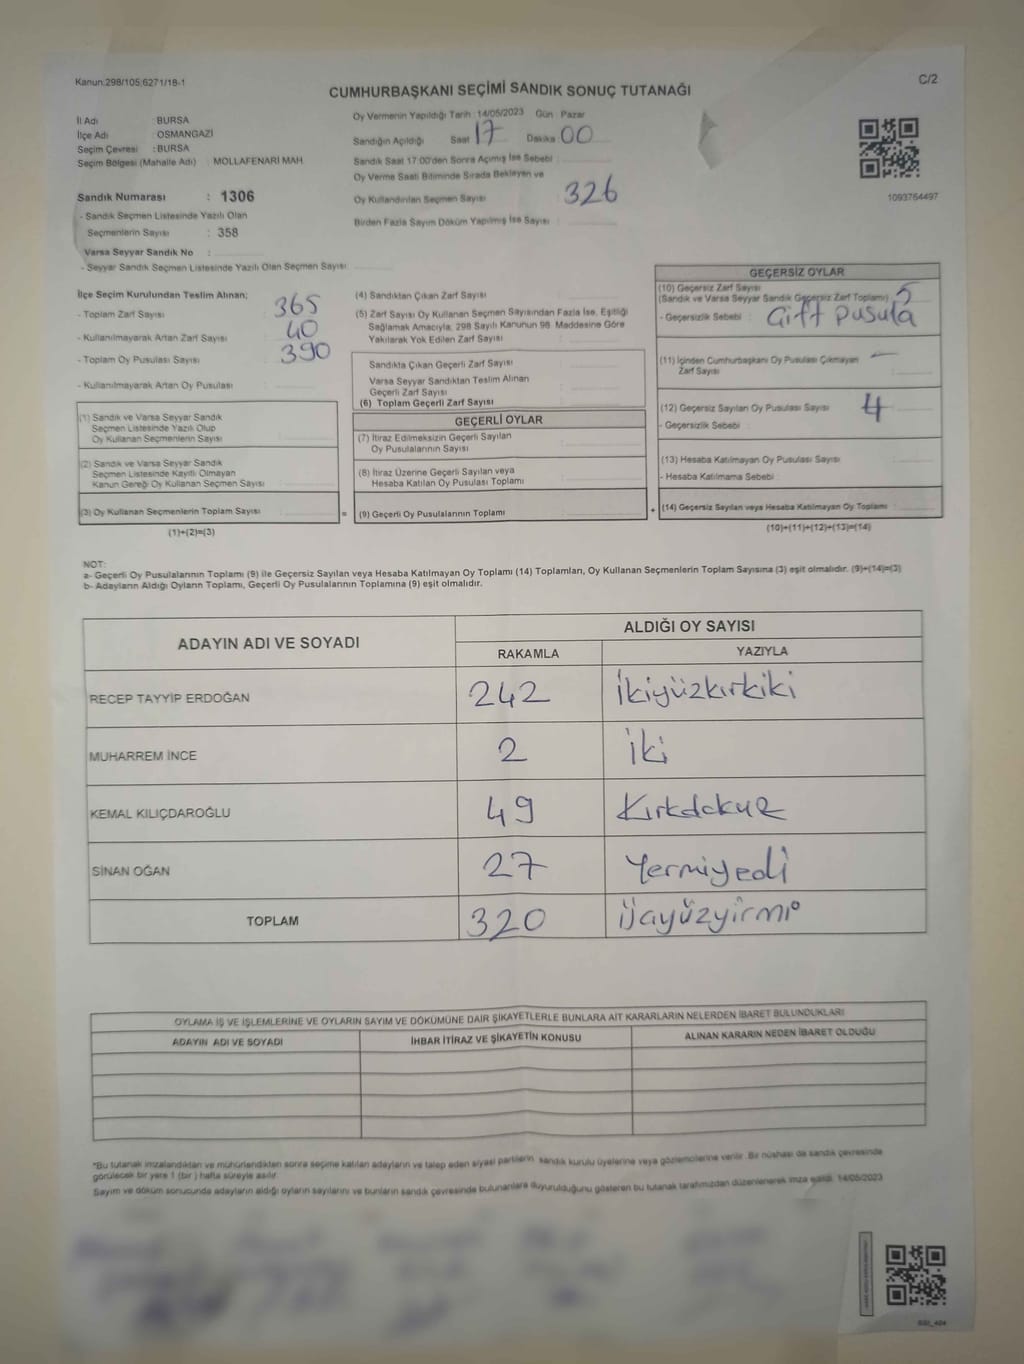 Kanun:298/105;6271/18-1
C/2
CUMHURBAŞKANI SEÇİMİ SANDIK SONUÇ TUTANAĞI
İl Adı : BURSA
İlçe Adı : OSMANGAZİ
Seçim Çevresi : BURSA
Seçim Bölgesi (Mahalle Adı) : MOLLAFENARI MAH.
Sandık Numarası : 1306
- Sandık Seçmen Listesinde Yazılı Olan
Seçmenlerin Sayısı : 358
Varsa Seyyar Sandık No :
- Seyyar Sandık Seçmen Listesinde Yazılı Olan Seçmen Sayısı:
Oy Vermenin Yapıldığı Tarih :14/05/2023 Gün : Pazar
Sandığın Açıldığı Saat 17 Dakika : 00
Sandık Saat 17:00'den Sonra Açımış İse Sebebi :
Oy Verme Saati Bitiminde Sırada Bekleyen ve
Oy Kullandırılan Seçmen Sayısı : 326
Birden Fazla Sayım Döküm Yapılmış İse Sayısı :
1093764497
İlçe Seçim Kurulundan Teslim Alınan;
- Toplam Zarf Sayısı : 365
- Kullanılmayarak Artan Zarf Sayısı : 40
- Toplam Oy Pusulası Sayısı : 390
- Kullanılmayarak Artan Oy Pusulası :
(1) Sandık ve Varsa Seyyar Sandık
Seçmen Listesinde Yazılı Olup
Oy Kullanan Seçmenlerin Sayısı :
(2) Sandık ve Varsa Seyyar Sandık
Seçmen Listesinde Kayıtlı Olmayan
Kanun Gereği Oy Kullanan Seçmen Sayısı :
(3) Oy Kullanan Seçmenlerin Toplam Sayısı : =
(1)+(2)=(3)
(4) Sandıktan Çıkan Zarf Sayısı :
(5) Zarf Sayısı Oy Kullanan Seçmen Sayısından Fazla İse, Eşitliği
Sağlamak Amacıyla, 298 Sayılı Kanunun 98. Maddesine Göre
Yakılarak Yok Edilen Zarf Sayısı :
Sandıkta Çıkan Geçerli Zarf Sayısı :
Varsa Seyyar Sandıktan Teslim Alınan
Geçerli Zarf Sayısı :
(6) Toplam Geçerli Zarf Sayısı :
GEÇERLİ OYLAR
(7) İtiraz Edilmeksizin Geçerli Sayılan
Oy Pusulalarının Sayısı :
(8) İtiraz Üzerine Geçerli Sayılan veya
Hesaba Katılan Oy Pusulası Toplamı :
(9) Geçerli Oy Pusulalarının Toplamı : +
GEÇERSİZ OYLAR
(10) Geçersiz Zarf Sayısı
(Sandık ve Varsa Seyyar Sandık Geçersiz Zarf Toplamı) : 5
- Geçersizlik Sebebi : Çift pusula
(11) İçinden Cumhurbaşkanı Oy Pusulası Çıkmayan
Zarf Sayısı : —
(12) Geçersiz Sayılan Oy Pusulası Sayısı : 4
- Geçersizlik Sebebi :
(13) Hesaba Katılmayan Oy Pusulası Sayısı :
- Hesaba Katılmama Sebebi :
(14) Geçersiz Sayılan veya Hesaba Katılmayan Oy Toplamı :
(10)+(11)+(12)+(13)=(14)
NOT:
a- Geçerli Oy Pusulalarının Toplamı (9) ile Geçersiz Sayılan veya Hesaba Katılmayan Oy Toplamı (14) Toplamları, Oy Kullanan Seçmenlerin Toplam Sayısına (3) eşit olmalıdır. (9)+(14)=(3)
b- Adayların Aldığı Oyların Toplamı, Geçerli Oy Pusulalarının Toplamına (9) eşit olmalıdır.
ADAYIN ADI VE SOYADI ALDIĞI OY SAYISI
RAKAMLA YAZIYLA
RECEP TAYYİP ERDOĞAN 242 İkiyüzkırkiki
MUHARREM İNCE 2 iki
KEMAL KILIÇDAROĞLU 49 Kırkdokuz
SİNAN OĞAN 27 Yermiyedi
TOPLAM 320 Üçyüzyirmi
OYLAMA İŞ VE İŞLEMLERİNE VE OYLARIN SAYIM VE DÖKÜMÜNE DAİR ŞİKAYETLERLE BUNLARA AİT KARARLARIN NELERDEN İBARET BULUNDUKLARI
ADAYIN ADI VE SOYADI İHBAR İTİRAZ VE ŞİKAYETİN KONUSU ALINAN KARARIN NEDEN İBARET OLDUĞU
*Bu tutanak imzalandıktan ve mühürlendikten sonra seçime katılan adayların ve talep eden siyasi partilerin, sandık kurulu üyelerine veya gözlemcilerine verilir. Bir nüshası da sandık çevresinde
görülecek bir yere 1 (bir ) hafta süreyle asılır.
Sayım ve döküm sonucunda adayların aldığı oyların sayılarını ve bunların sandık çevresinde bulunanlara duyurulduğunu gösteren bu tutanak tarafımızdan düzenlenerek imza edildi. 14/05/2023